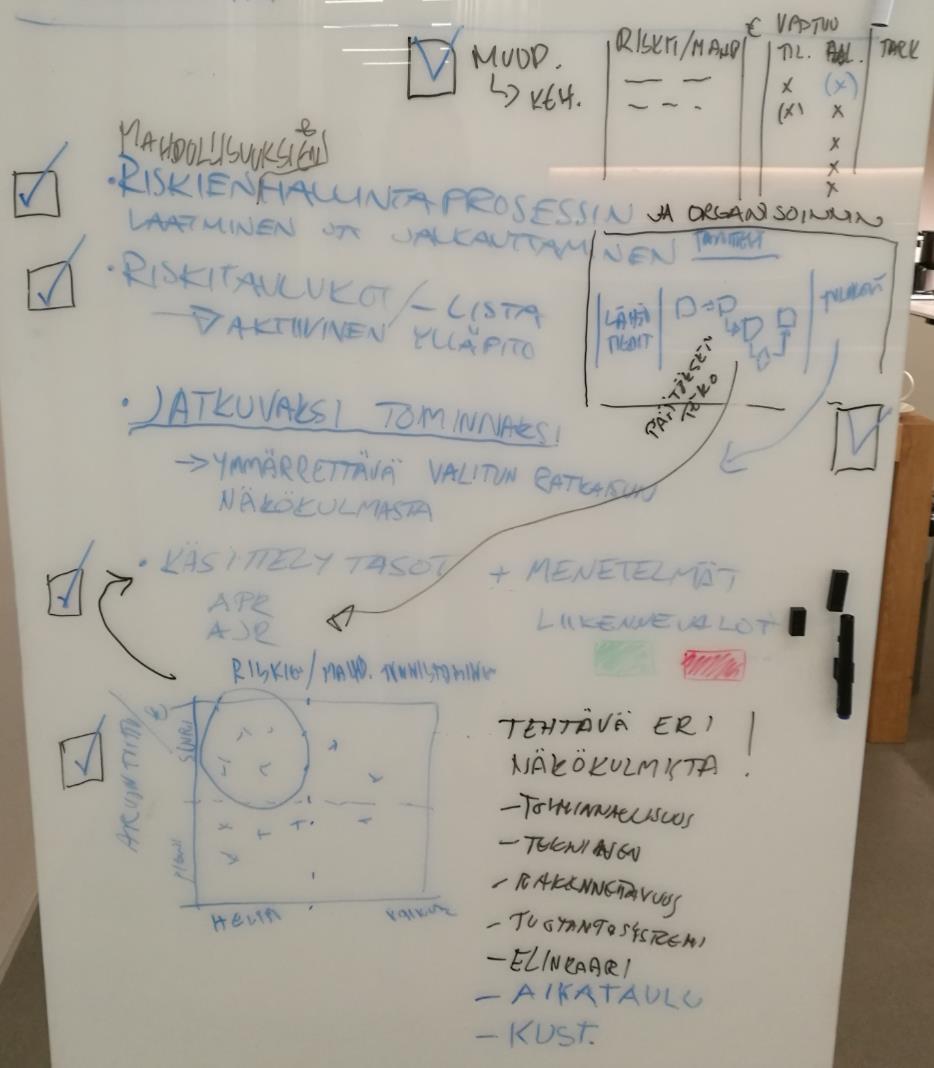 MUOD.
↳ KEH.
RISKI/MAHD
€
VASTUU
TIL. 
x (x)
(x) x
x
x
x
MAHDOLLISUUKSIEN
• RISKIENHALLINTAPROSESSIN JA ORGANISOINNIN
LAATIMINEN JA JALKAUTTAMINEN
• RISKITAULUKOT / – LISTA
→ AKTIIVINEN YLLÄPITO
LÄHTÖ
TIEDOT
PÄÄTÖKSEN
TEKO
• JATKUVAKSI TOMINNAKSI
→ YMMÄRRETTÄVÄ VALITUN RATKAISUN
NÄKÖKULMASTA
• KÄSITTELY TASOT + MENETELMÄT
APR
AJR
LIIKENNEVALOT
RISKIEN/MAHD. TUNNISTAMINEN
ARVIOINTI
€
SUURI
PIENI
HELPPO
VAIKEA
TEHTÄVÄ ERI
NÄKÖKULMISTA !
– TOIMINNALLISUUS
– TEKNINEN
– RAKENNETTAVUUS
– TUOTANTOSYSTEEMI
– ELINKAARI
– AIKATAULU
– KUST.